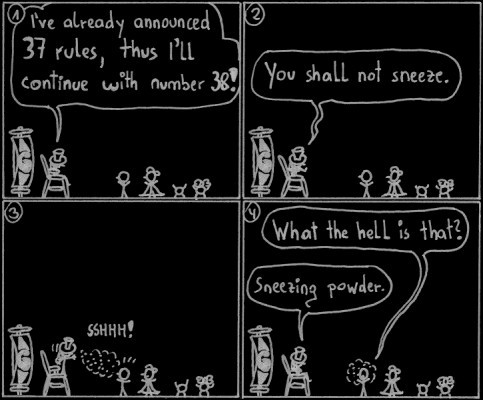 1
I've already announced
37 rules, thus I'll
continue with number 38!
2
You shall not sneeze.
3
SSHHH!
4
What the hell is that?
Sneezing powder.